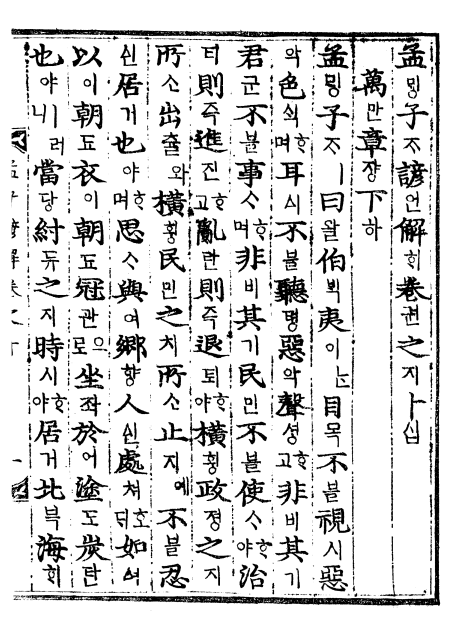 孟ᄆᆡᆼ子ᄌᆞ諺언解ᄒᆡ卷권之지十십
萬만章쟝下하
孟ᄆᆡᆼ子ᄌᆞㅣ曰왈伯ᄇᆡᆨ夷이ᄂᆞᆫ目목不블視시惡
악色ᄉᆡᆨᄒᆞ며耳ᅀᅵ不블聽텽惡악聲셩ᄒᆞ고非비其기
君군不블事ᄉᆞᄒᆞ며非비其기民민不블使ᄉᆞᄒᆞ야治
티則즉進진ᄒᆞ고亂란則즉退퇴ᄒᆞ야橫횡政졍之지
所소出츌와橫횡民민之지所소止지예不블忍
ᅀᅵᆫ居거也야ᄒᆞ며思ᄉᆞ與여鄕향人ᅀᅵᆫ處쳐호ᄃᆡ如여
以이朝됴衣의朝됴冠관ᄋᆞ로坐좌於어塗도炭탄
也야ㅣ러니當당紂듀之지時시ᄒᆞ야居거北븍海ᄒᆡ